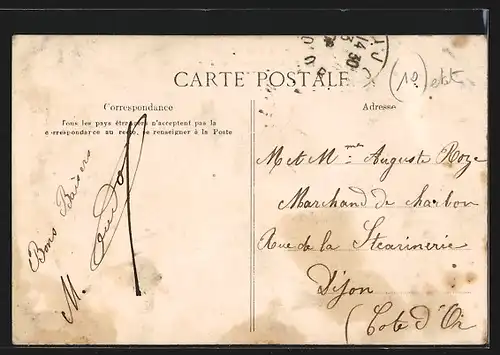 14 30
CARTE POSTALE
(10)
Correspondance
Tous les pays étrangers n'acceptent pas la
correspondance au recto, se renseigner à la Poste
Adresse
Bons Baisers
M.
M et Mme Auguste Roze
Marchand de charbon
Rue de la Stearinerie
Dijon
(Cote d'Or